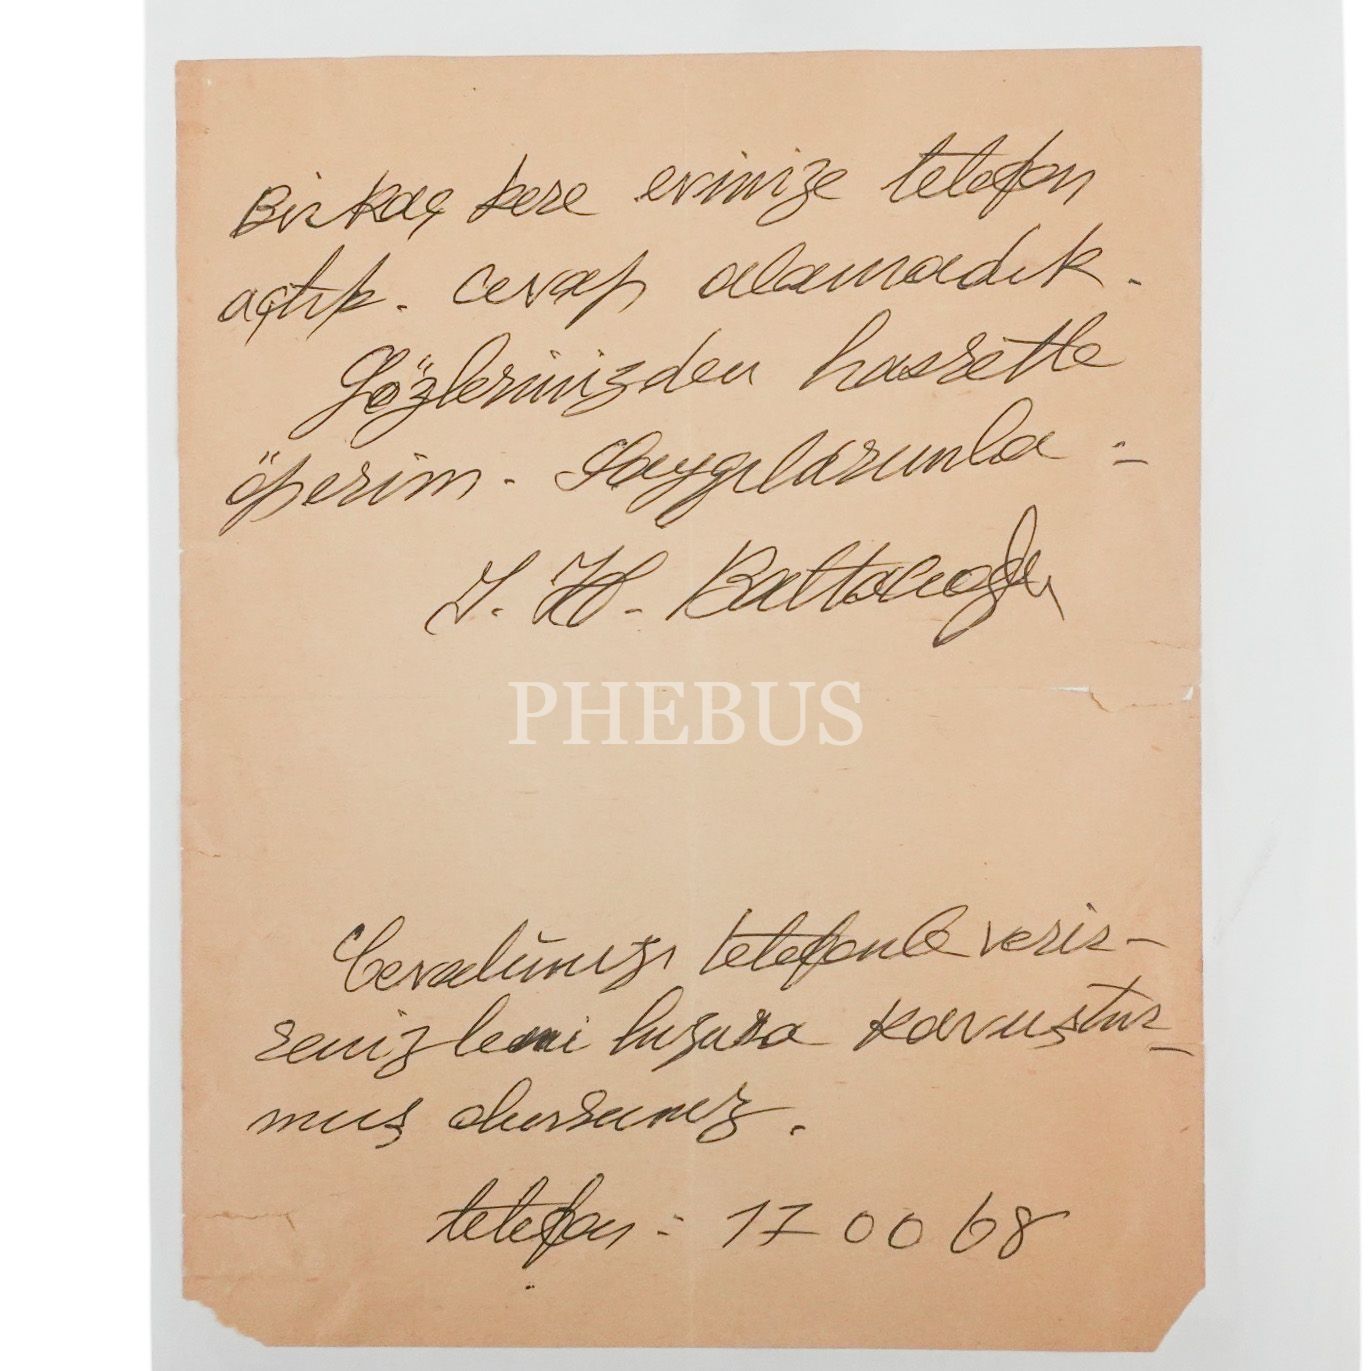 Bir kaç kere evinize telefon
açtık. cevap alamadık.
Gözlerinizden hasretle
öperim. Saygılarımla :
İ. H. Baltacıoğlu
PHEBUS
Cevabınızı telefonla verir-
seniz beni huzura kavuştur-
muş olursunuz.
telefon : 17 00 68